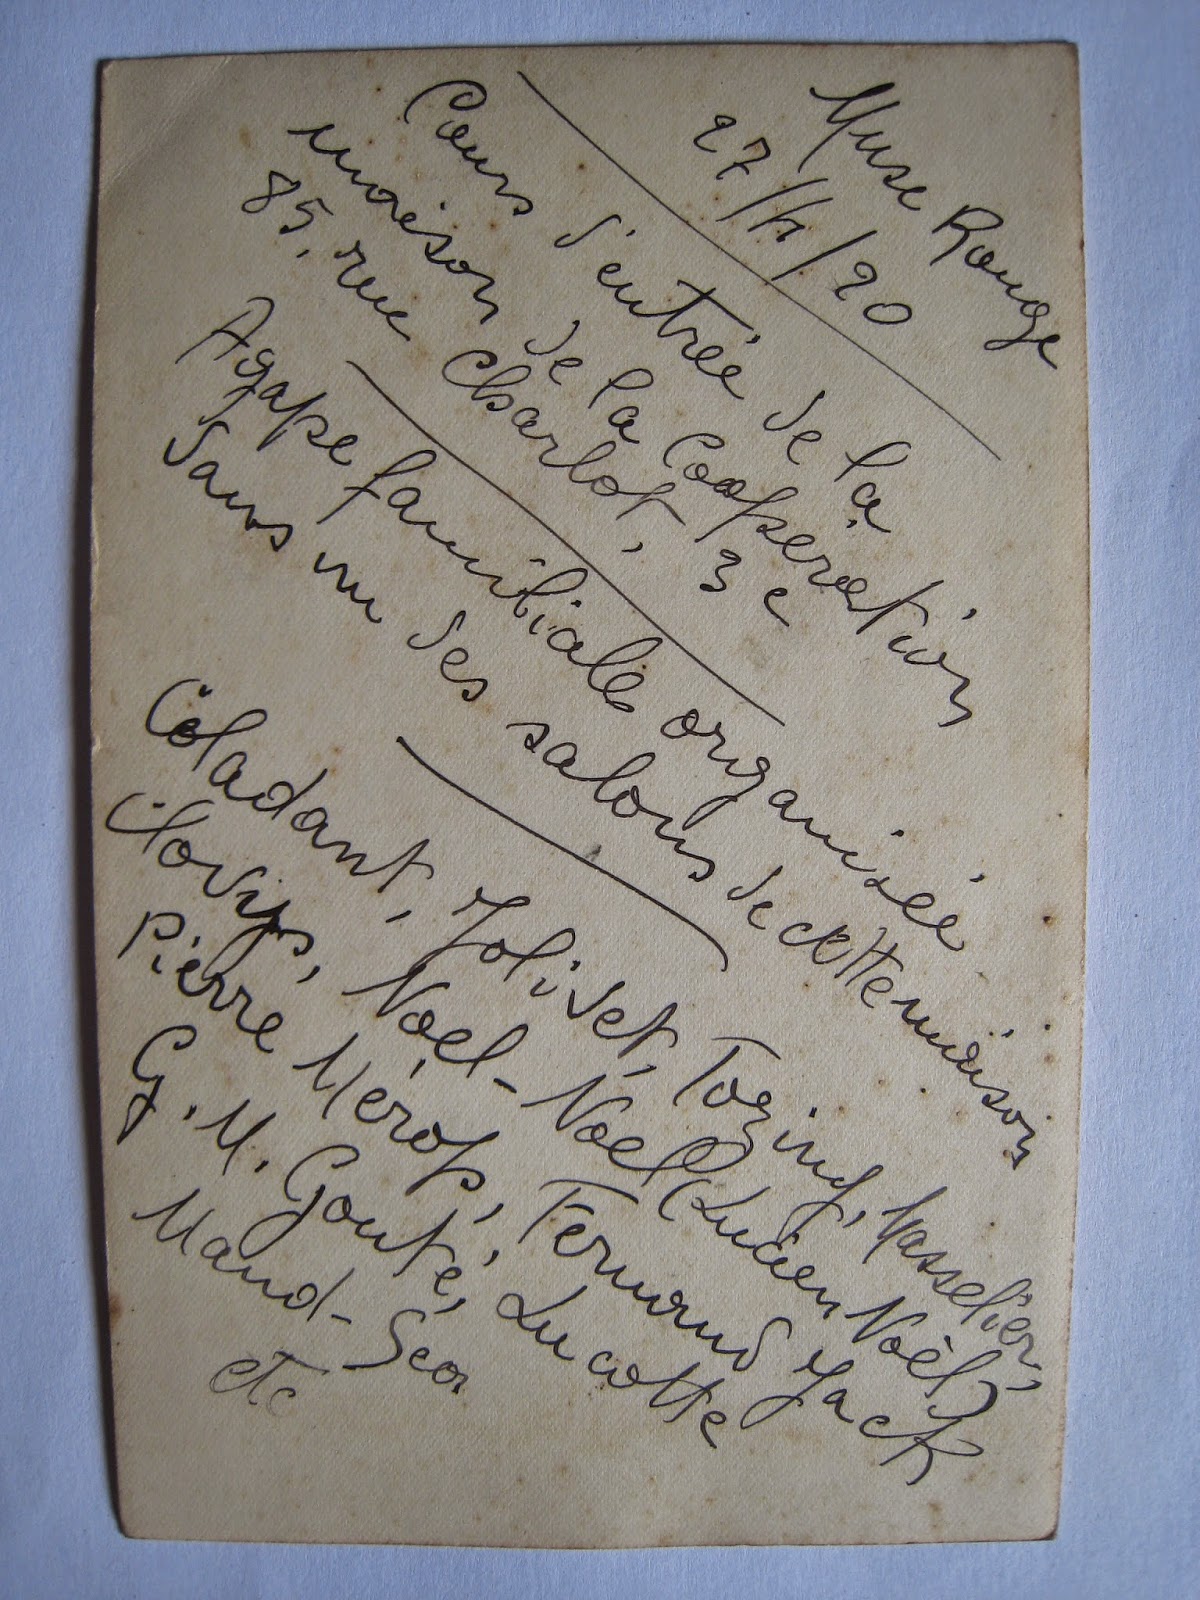 Muse Rouge
27/11/20
Cours d'entrée de la
maison de la Coopération
85, rue Charlot, 3e
Agape familiale organisée
dans un des salons de cette maison
Coladant, Jolivet, Toziny, Masselier,
Clovys, Noël-Noël (Lucien Noël)
Pierre Mérop, Fernand Jack
G. M. Gouté, Lucotte
Maud-Séor
etc